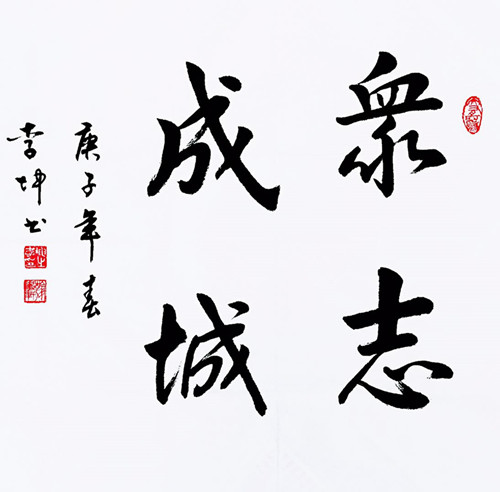 眾志
成城
庚子年春
李坤书